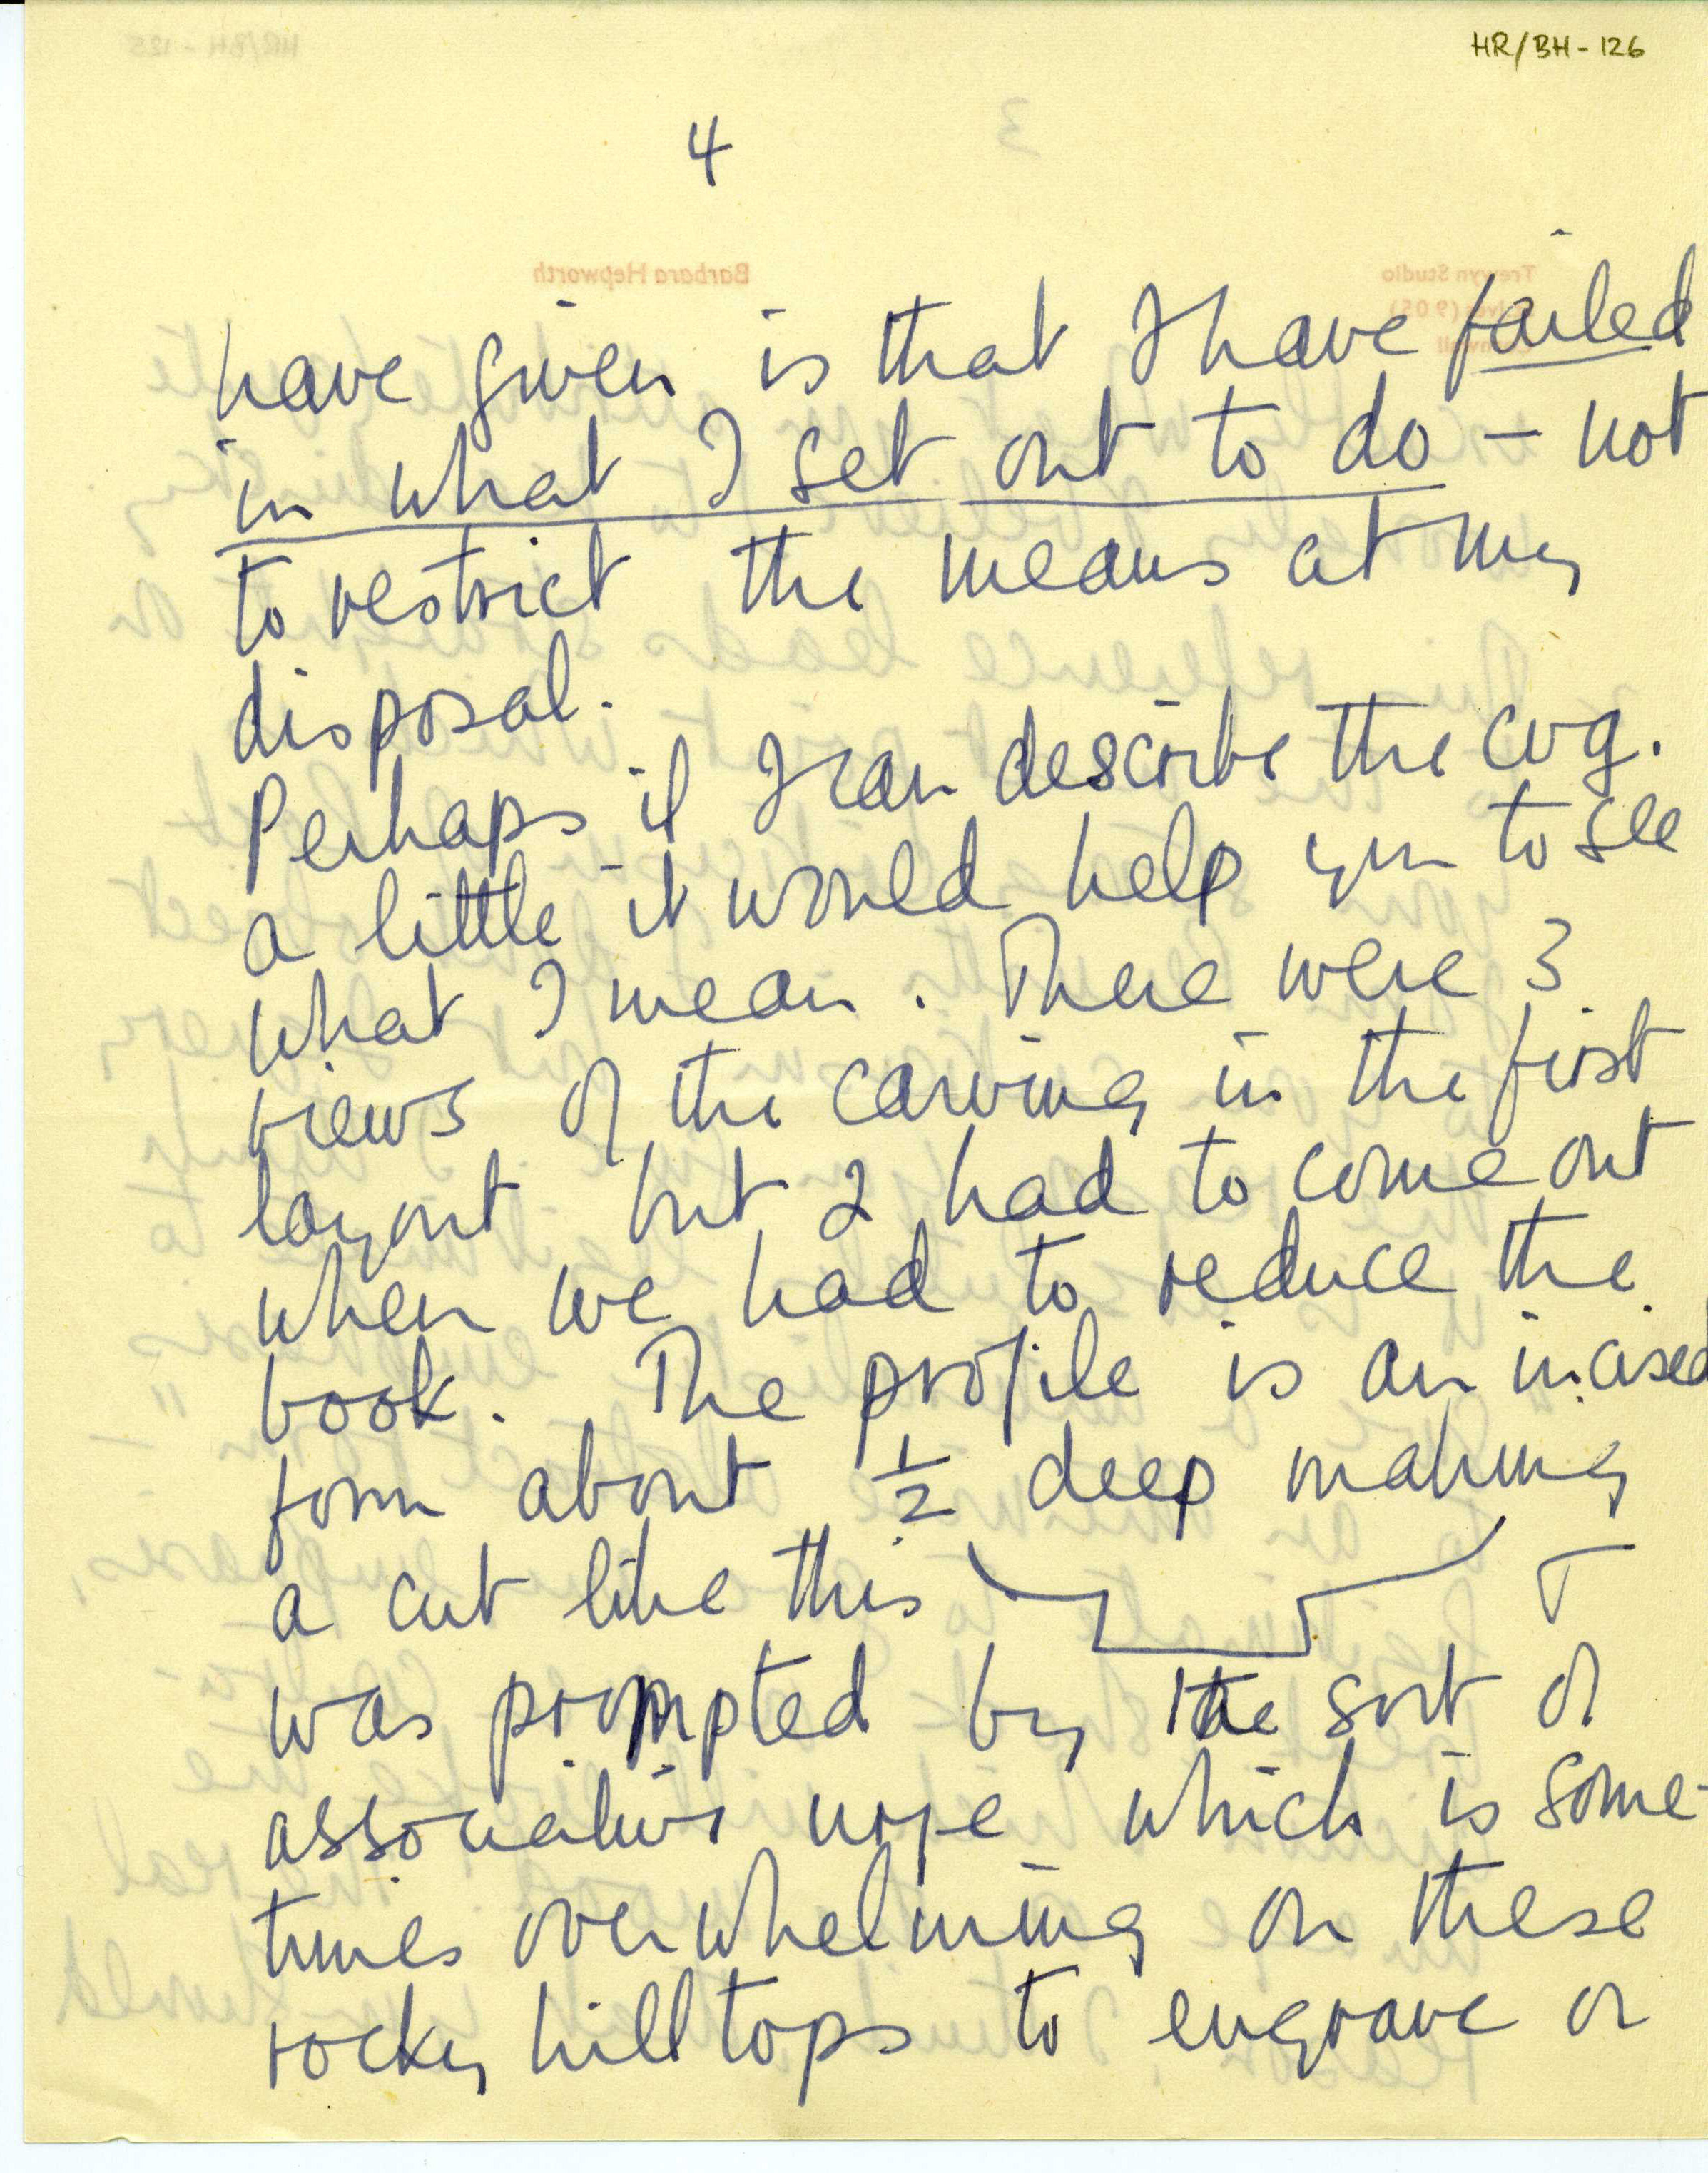 HR/BH - 126
4
have given is that I have failed
in what I set out to do – not
to restrict the means at my
disposal.
Perhaps if I can describe the cvg.
a little it would help you to see
what I mean. There were 3
views of the carving in the first
layout but 2 had to come out
when we had to reduce the
book. The profile is an incised
form about ½ deep making
a cut like this
was prompted by the sort of
associative urge which is some-
times overwhelming on these
rocky hill tops to engrave or
Barbara Hepworth
Trewyn Studio